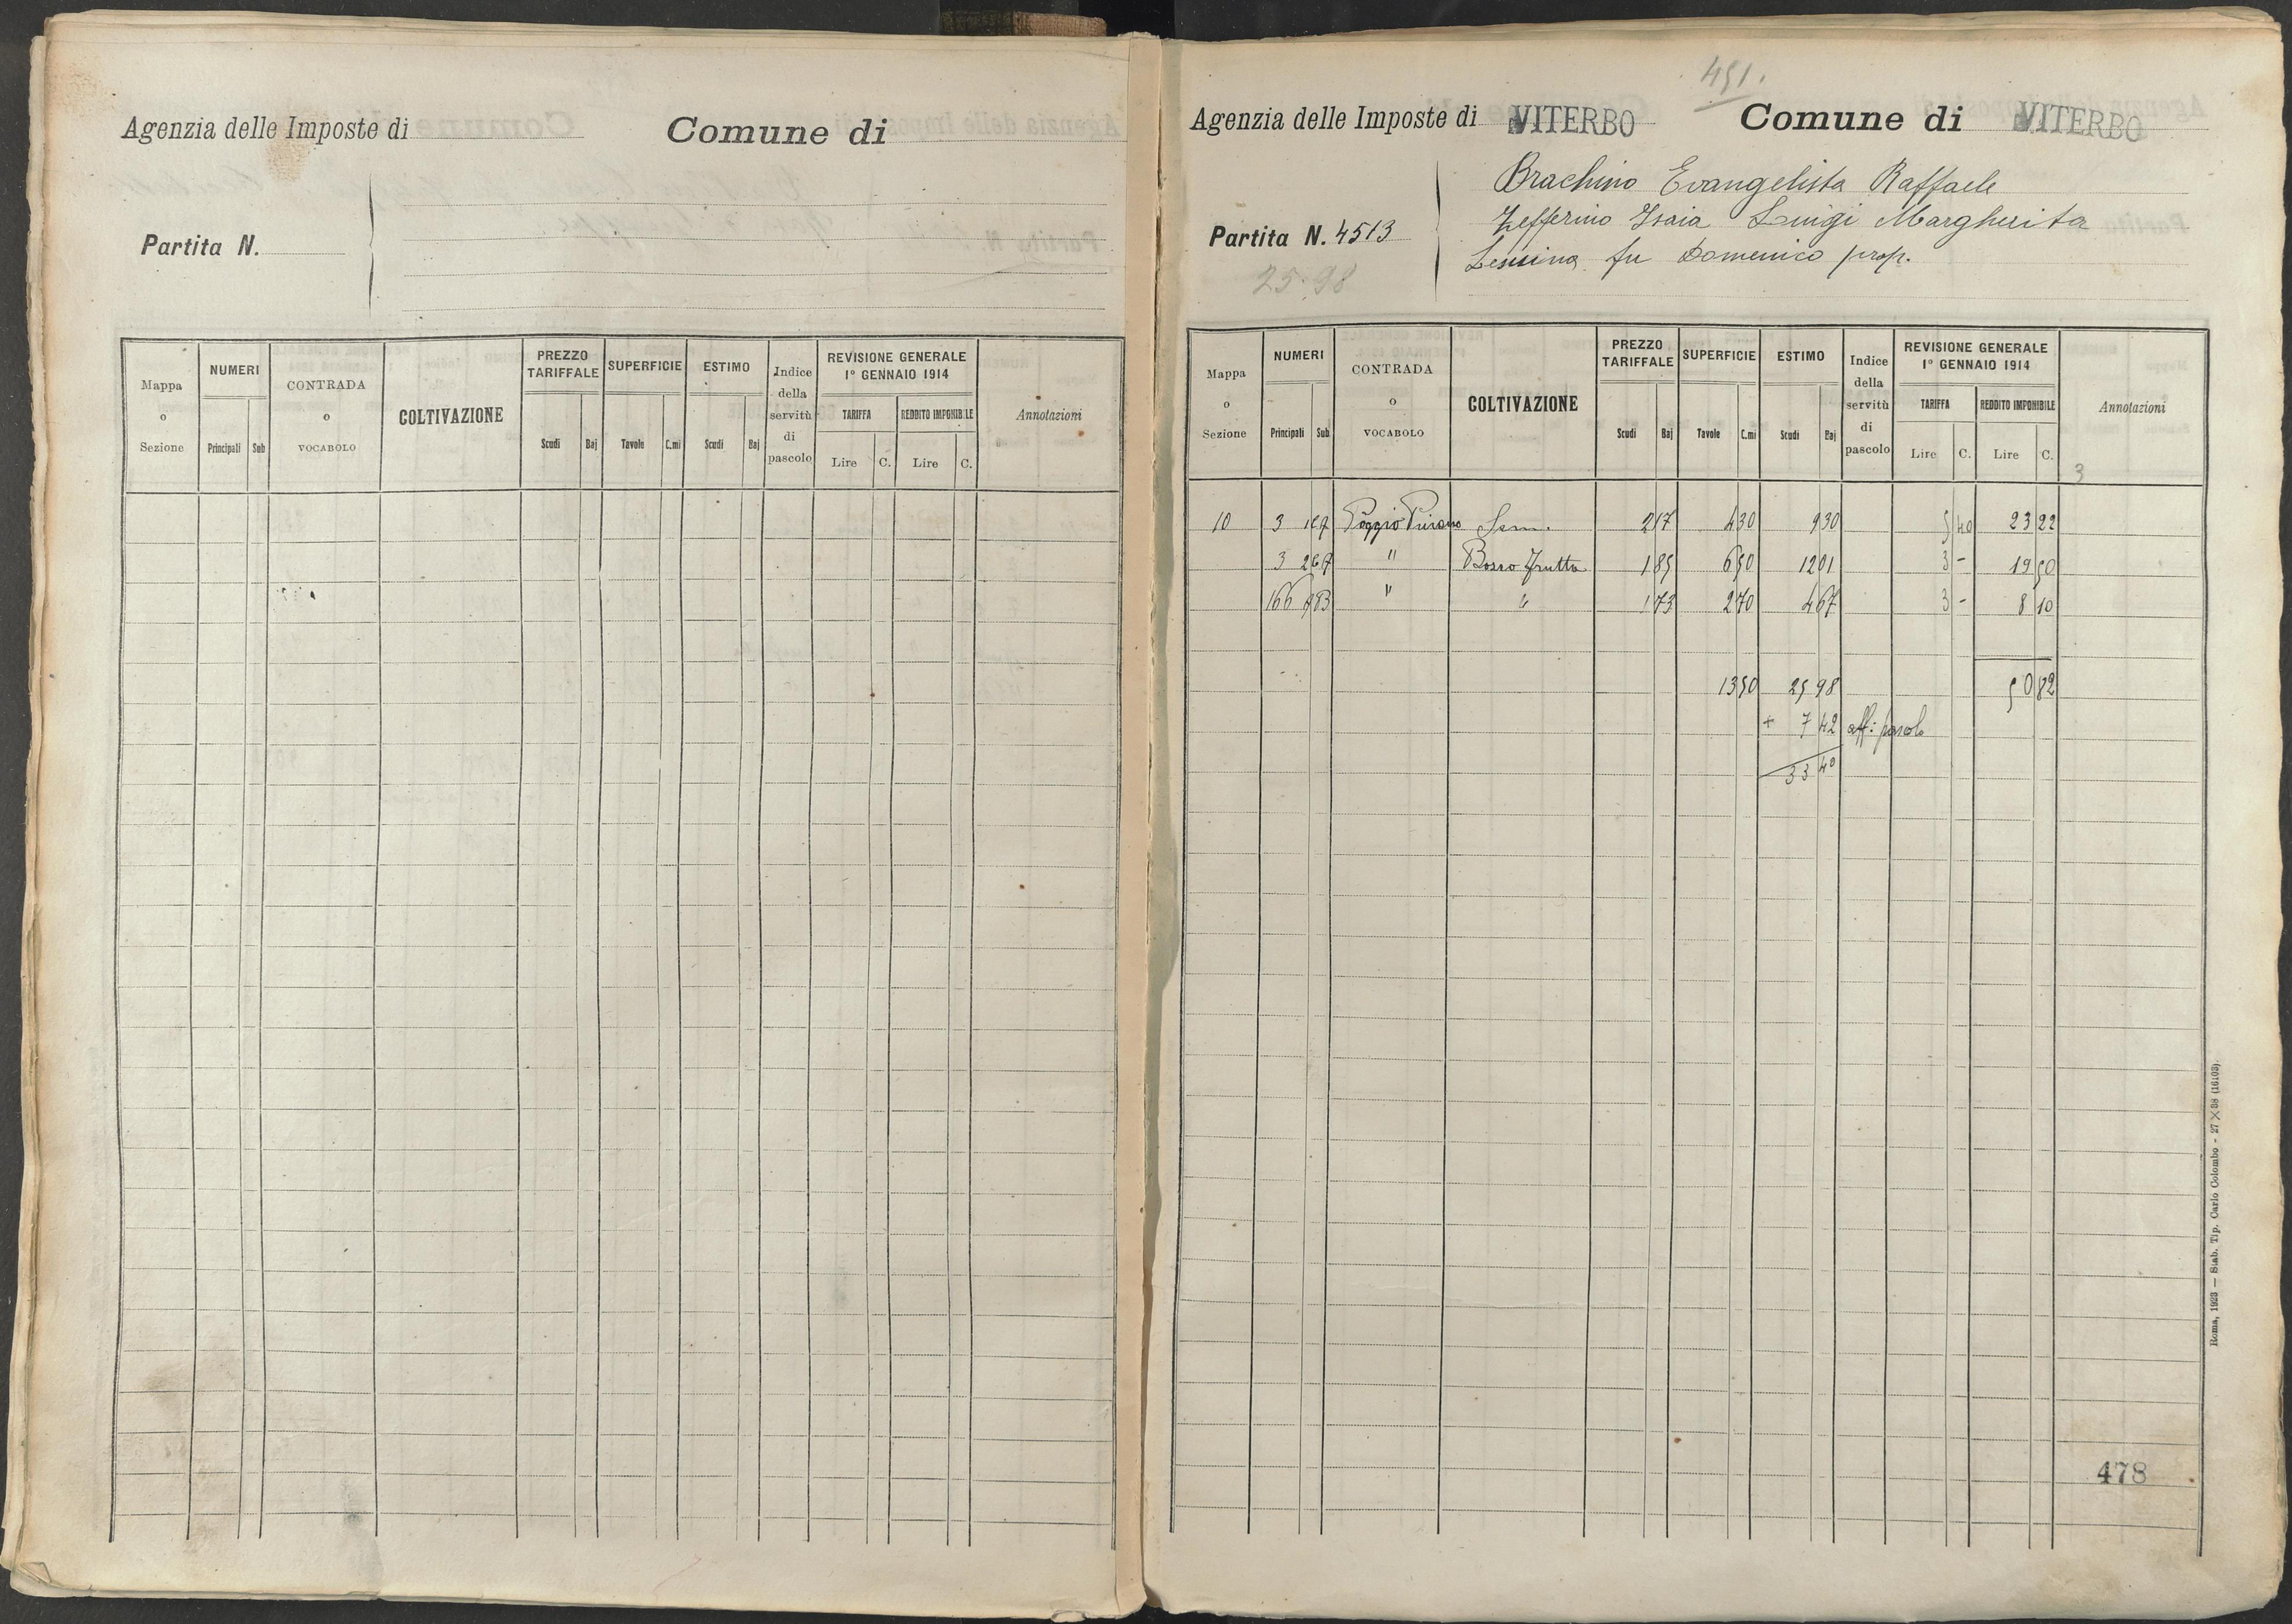 Agenzia delle Imposte di
Comune di
Partita N.
Mappa o Sezione
NUMERI
Principali Sub
CONTRADA o VOCABOLO
COLTIVAZIONE
PREZZO TARIFFALE
Scudi Baj
SUPERFICIE
Tavole C.mi
ESTIMO
Scudi Baj
Indice della servitù di pascolo
REVISIONE GENERALE
1º GENNAIO 1914
TARIFFA
Lire C.
REDDITO IMPONIBILE
Lire C.
Annotazioni
451.
Agenzia delle Imposte di VITERBO Comune di VITERBO
Brachino Evangelista Raffaele
Zefferino Isaia Luigi Margherita
fu Domenico prop.
Partita N. 4513
25.98
Mappa o Sezione
NUMERI
Principali Sub
CONTRADA o VOCABOLO
COLTIVAZIONE
PREZZO TARIFFALE
Scudi Baj
SUPERFICIE
Tavole C.mi
ESTIMO
Scudi Baj
Indice della servitù di pascolo
REVISIONE GENERALE
1º GENNAIO 1914
TARIFFA
Lire C.
REDDITO IMPONIBILE
Lire C.
Annotazioni
3
10 3 Poggio Sem. 2 17 4 30 9 30 5 40 23 22
3 " Bosco frutto 1 85 6 50 12 01 3 - 19 50
166 " " 1 73 2 70 4 67 3 - 8 10
13 50 25 98 50 82
+ 7 42 aff: pascolo
33 40
478
Roma, 1923 — Stab. Tip. Carlo Colombo - 27 × 38 (16103).